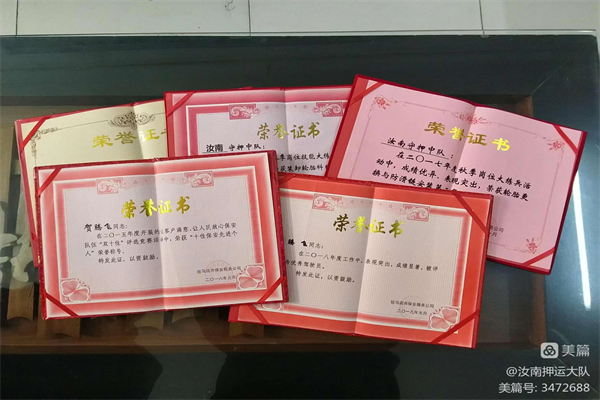 荣誉证书
荣誉证书
汝南守押中队
季岗位技能大练
荣誉证书
汝南守押中队：
在二〇一七年度秋季岗位大练兵活
动中，成绩优异，表现突出，荣获轮胎更
换与防滑链安装第
荣誉证书
贺腾飞同志：
在二〇一五年度开展的
客户满意、让人民放心保安
队伍"双十佳"评选竞赛活动中，荣获"十佳保安先进个
人"荣誉称号。
特发此证，以资鼓励。
驻马店市保安服务公司
二〇一六年元月
荣誉证书
腾飞同志：
在二〇一八年度工作中，表现突出，成绩显著，被评
优秀驾驶员。
特发此证，以资鼓励。
驻马店市保安服务公司
二〇一九年元月
美篇
@汝南押运大队
美篇号: 3472688